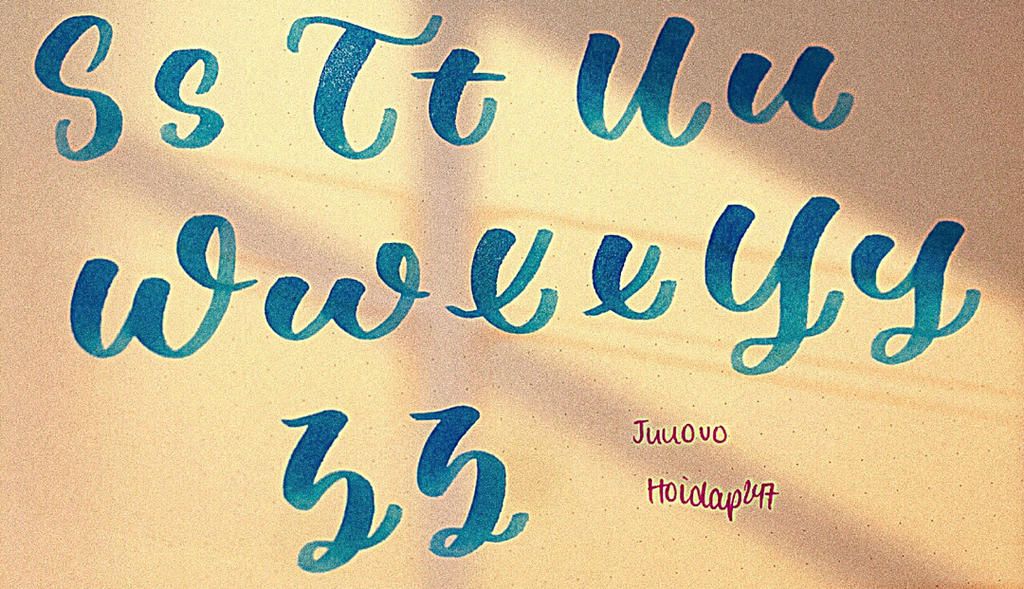 Ss Tt Uu
Ww Xx Yy
Zz
Juuovo
Hoidap247